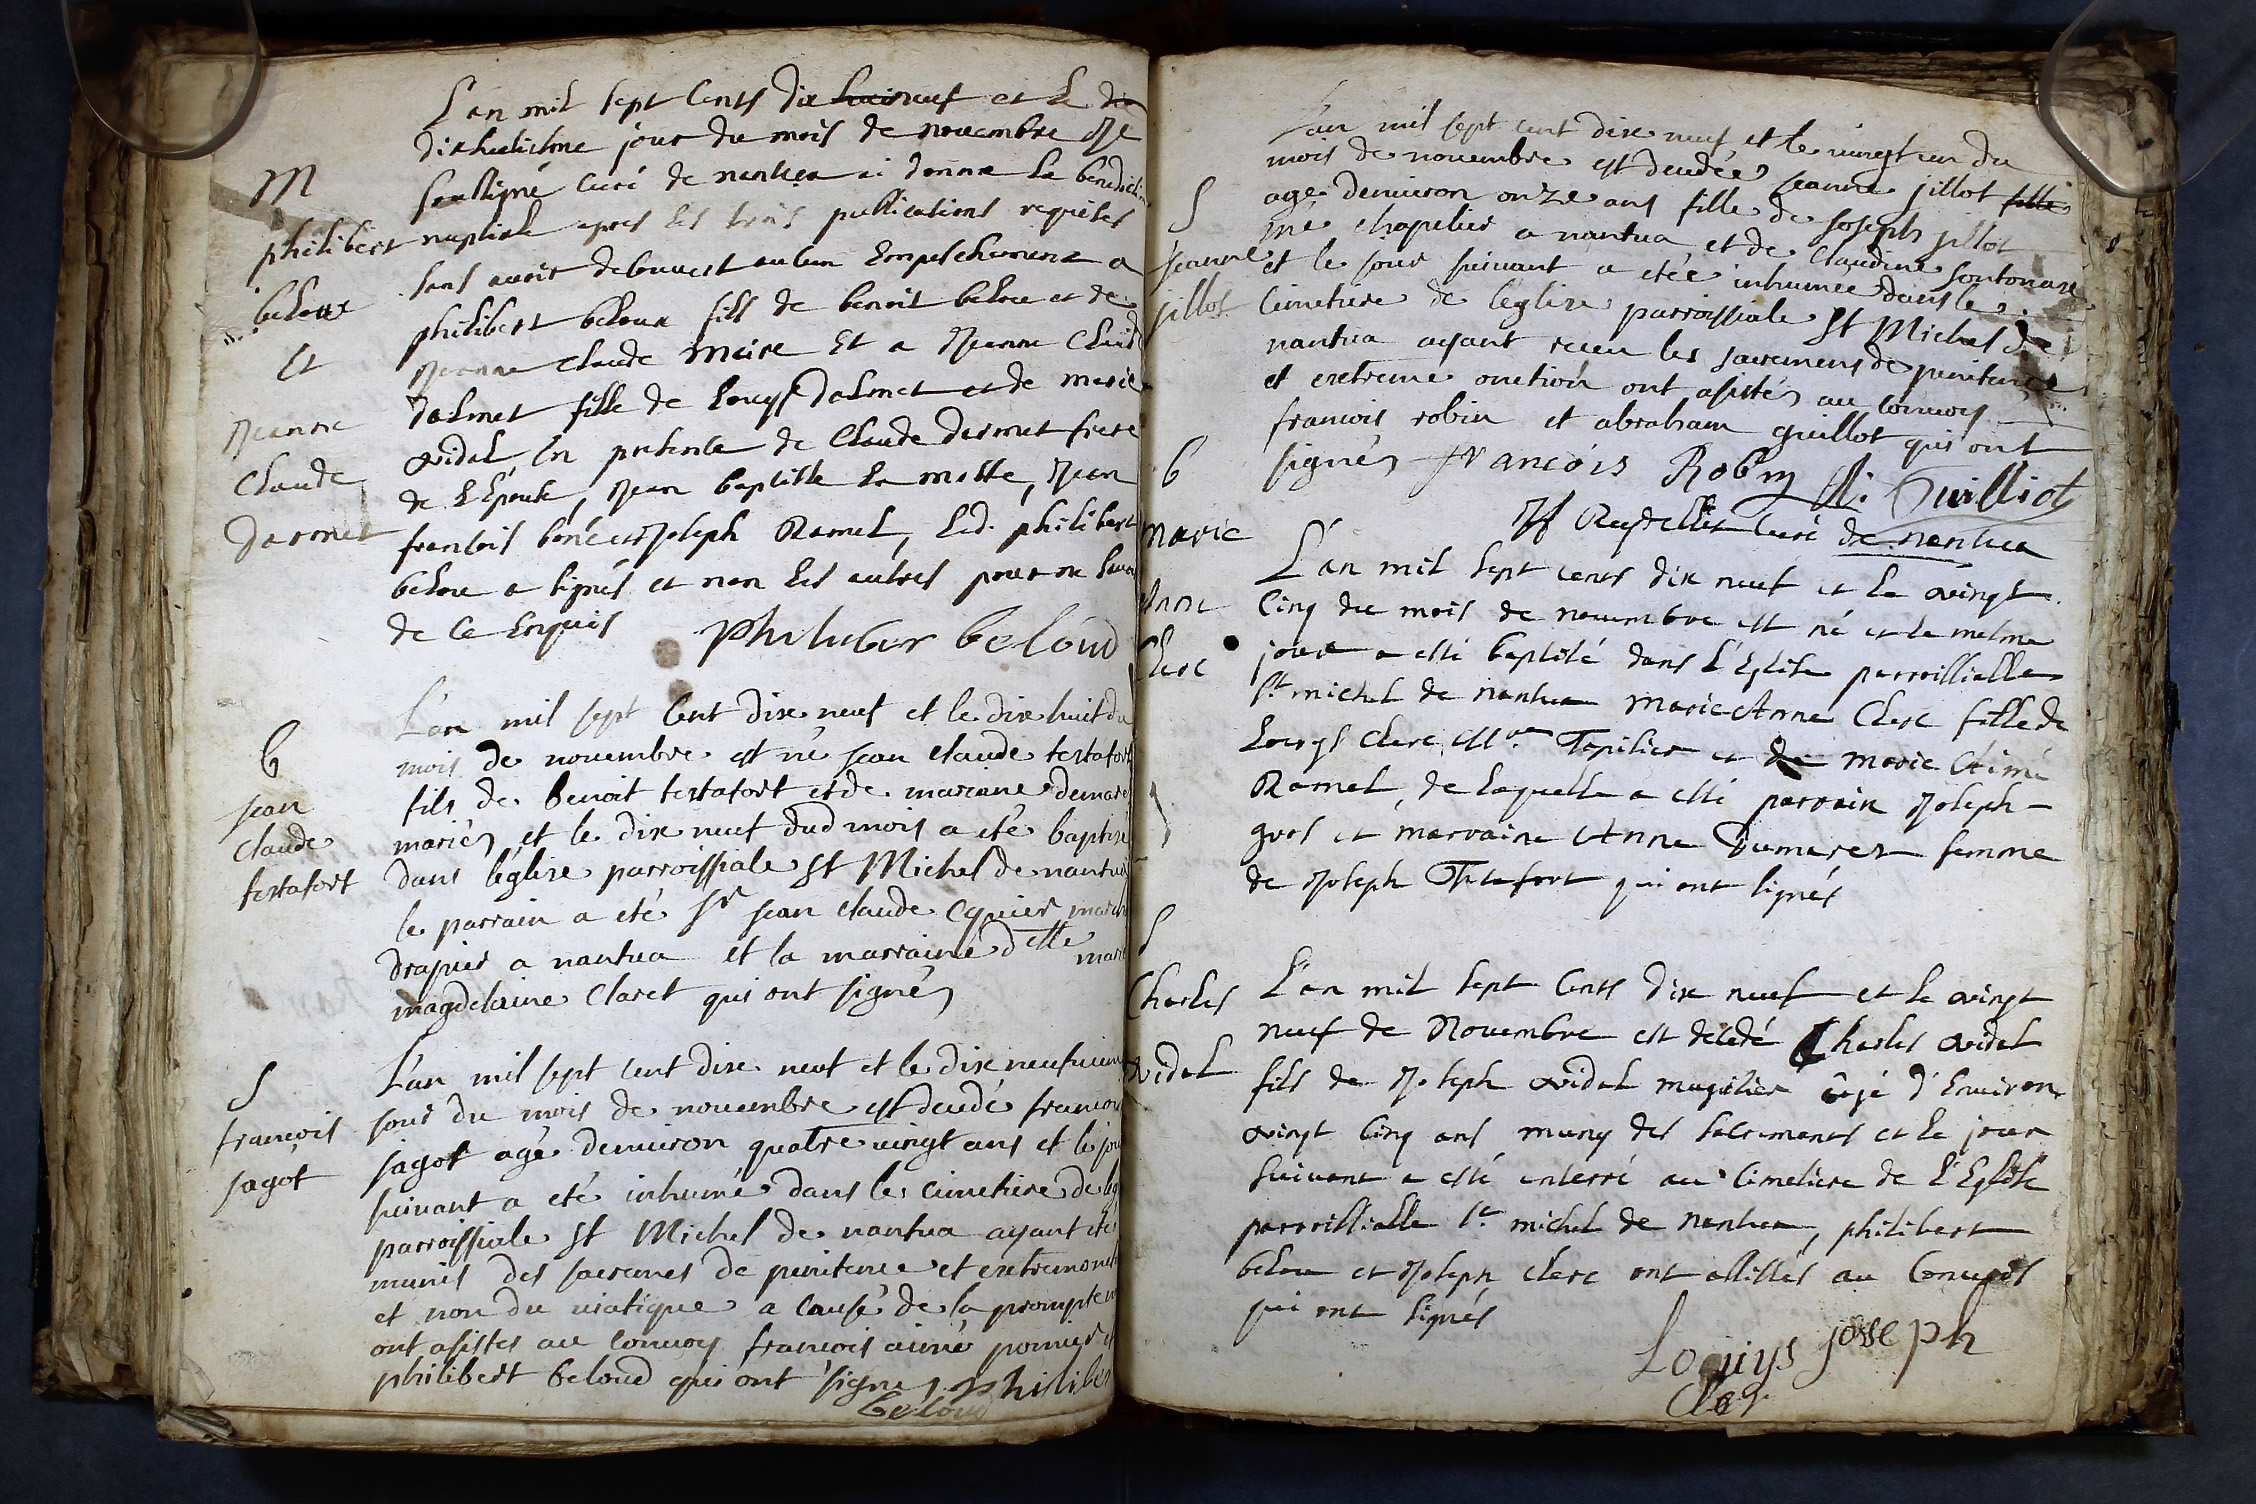 L'an mil sept Cents dix neuf et le
dixhuictiéme jour du mois de novembre Je
M
soussigné curé de nantua ai donné la bénédiction
philibert
nuptiale apres les trois publications requises
sans avoir découvert aucun Empeschement a
beloux
philibert beloux fils de benoit beloue et de
Et
Jeanne Claude Maire Et a Jeanne Claude
dalmet fille de Louys dalmet et de marie
Jeanne
vidal En presence de Claude dermet frere
Claude
de L'Epouse, Jean baptiste la motte, Jean
dermet
françois et Joseph Ramel, led. philibert
beloue a signés et non les autres pour ne savoir
de ce Enquis
philiber beloud
L'an mil sept Cent dix neuf et le dix huit du
B
mois de novembre est né jean claude testafort
jean
fils de benoit testafort et de mariane dumarest
claude
mariés et le dix neuf dud mois a eté baptisé
testafort
dans l'église parroissiale St Michel de nantua
le parrain a eté Sr jean claude march
drapier a nantua et la marraine delle marie
magdelaine Claret qui ont signés
S
L'an mil sept cent dix neuf et le dix neufuieme
françois
jour du mois de novembre est decedé françois
jagot
jagot agé denuiron quatre vingt ans et le jour
suivant a eté inhumé dans le cimetiere de leg
parroissiale St Michel de nantua ayant eté
munis des sacremes de penitence et extremonct
et non du viatique a cause de la prompte
ont asistes au convoy françois aimé pomier et
philibert beloud qui ont signe philiber
beloud
L'an mil sept cent dix neuf et le vingt un du
mois de novembre est decedée jeanne jillot fille
S
agé denuiron onze ans fille de joseph jillot
jeanne
me chapelier a nantua et de claudine sontonnas
jillot
et le jour suivant a etée inhumée dans le
Cimetiere de l'eglise parroissiale St Michel de
nantua ayant receu les sacremens de penitence
et extreme onction ont asistés au convoy
françois robin et abraham guillot qui ont
signés françois Robin A. Guilliot
Curé de nantua
B
marie
L'an mil sept cents dix neuf et le vingt
Anne
Cinq du mois de novembre est né et le mesme
Clerc
jour a esté baptisé dans L'Eglise parroissialle
St michel de nantua marie Anne Clerc fille de
Louys clerc Me Tapissier et de marie Aimé
Ramel, de laquelle a esté parrain Joseph
gros et marraine Anne Dumarest femme
de Joseph Testefort qui ont signés
S
Charles
L'an mil sept Cents dix neuf et le vingt
neuf de Novembre est decédé Charles vidal
vidal
fils de Joseph vidal âgé d'Environ
vingt Cinq ans muny des sacrements et le jour
suivant a esté enterré au Cimetiere de L'Eglise
parroissialle St michel de nantua, philibert
beloue et Joseph clerc ont assistés au Convoy
qui ont signés
Louys josseph
Cler